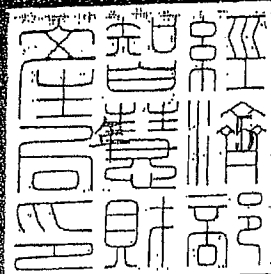 經濟部
智慧財
產局印